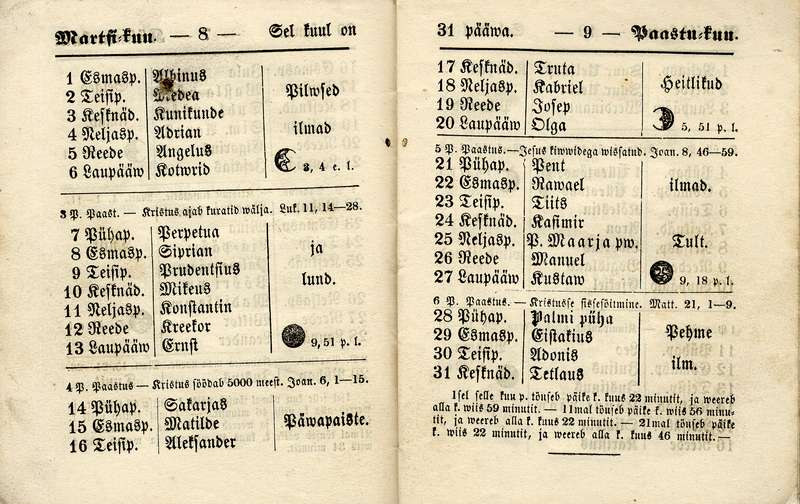 Martsi-kuu. — 8 — Sel kuul on
1 Esmasp. Albinus
2 Teisip. Medea Pilwsed
3 Kesknäd. Kunikunde
4 Neljasp. Adrian ilmad
5 Reede Angelus
6 Laupääw Kotwrid 3, 4 e. l.
3 P. Paast. — Kristus ajab kuratid wälja. Luk. 11, 14—28.
7 Pühap. Perpetua
8 Esmasp. Siprian ja
9 Teisip. Prudentsius
10 Kesknäd. Mikeus lund.
11 Neljasp. Konstantin
12 Reede Kreekor
13 Laupääw Ernst 9, 51 p. l.
4 P. Paastus — Kristus söödab 5000 meest. Joan. 6, 1—15.
14 Pühap. Sakarjas
15 Esmasp. Matilde Päwapaiste.
16 Teisip. Aleksander
31 pääwa. — 9 — Paastu-kuu.
17 Kesknäd. Truta
18 Neljasp. Kabriel Heitlikud
19 Reede Josep
20 Laupääw Olga 5, 51 p. l.
5 P. Paastus. — Jesus kiwwidega wissatud. Joan. 8, 46—59.
21 Pühap. Pent
22 Esmasp. Rawael ilmad.
23 Teisip. Tiits
24 Kesknäd. Kasimir
25 Neljasp. P. Maarja pw. Tult.
26 Reede Manuel
27 Laupääw Kustaw 9, 18 p. l.
6 P. Paastus. — Kristusse sissesõitmine. Matt. 21, 1—9.
28 Pühap. Palmi püha
29 Esmasp. Eistakius Pehme
30 Teisip. Adonis
31 Kesknäd. Tetlaus ilm.
1sel selle kuu p. tõuseb päike k. kuus 22 minutit, ja weereb
alla k. wiis 59 minutit. — 11mal tõuseb päike k. wiis 56 minu-
tit, ja weereb alla k. kuus 22 minutit. — 21mal tõuseb päike
k. wiis 22 minutit, ja weereb alla k. kuus 46 minutit.—